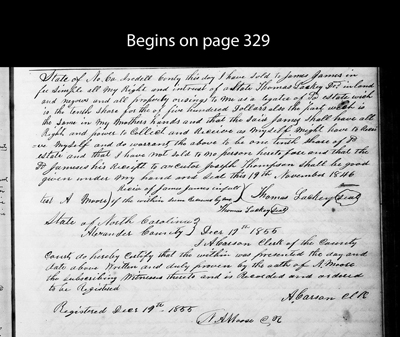 Begins on page 329
State of No. Ca. Iredell County this day I have sold to James James in
fee Simple all my Right and intrust of a State Thomas Lackey Sr. in land
and negroes and all property owsings to me as a legatee of Sd estate wich
is the tenth share for the of five hundred Dollars also the part which is
the same in my Mothers hands and that the Said James Shall have all
Right and power to Collect and Receive as Myself might have to Recei
ve Myself and do warrant the above to be one tenth Share of Sd
estate and that I have not Sold to no person heretofore and that the
Sd Jameses his Receipt to Joseph Thompson Shall be good
given under my hand and Seal this 19th November 1846
Recie of James James in full
Test A. Moore of the within
Thomas Lackey Seal
Thomas Lackey Seal
State of North Carolina
Alexander County Decr 19th 1855
I A Carson Clerk of the County
Court do hereby Certify that the within was presented the day and
date above Written and duly proven by the oath of A. Moore
the subscribing Witness thereto and is Recorded and ordered
to be Registered
A Carson Clk
Registered Decr 19th 1855